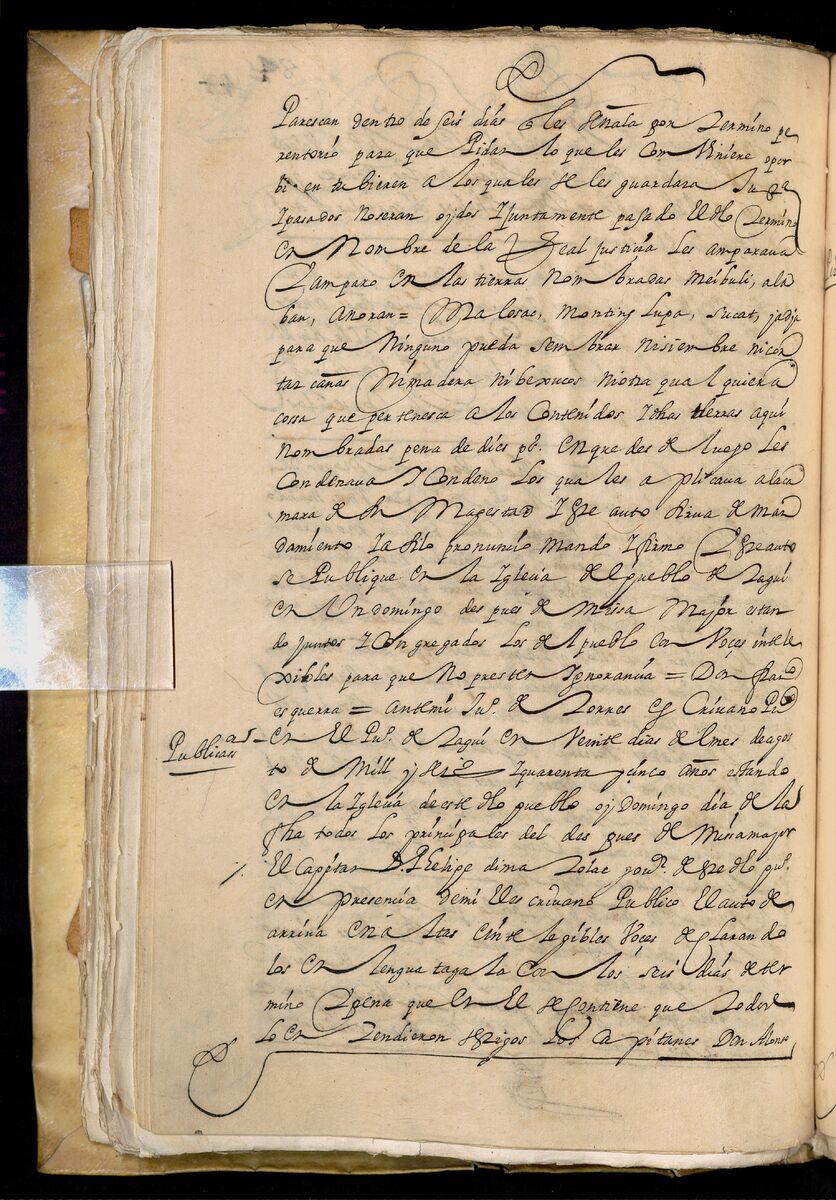 Parescan dentro de seis dias q̃ les señala por termino pe
rentorio para que Pidan lo que les Con Viniere opor
bi en tubieren a los quales se les guardara Jus.a
I pasados no seran oydos I juntamente pasado El dho termino
en Nombre de la Real justicia les amparava
Y amparo en las tierras nombradas Meibuli, ala
ban, Anoran = Malosac, Monting Lupa, sucat, jadja
para que Ninguno pueda sembrar ni siembre ni cor
tar cañas Ni madera ni bexucos ni otra qual quiera
cossa que pertenesca a los Contenidos I dhas tierras aqui
Nombradas pena de dies ps. en que desde luego les
Condenava I Condeno los quales a plicava a la ca
mara de su Magestad I este auto sirva de man
damiento I a si lo pronunçio mando I firmo Y este auto
se Publique en la Iglecia del pueblo de Taqui
en Un domingo des pues de missa Major estan
do juntos I Con gregados los del pueblo con Voçes intele
xibles para que No presten Ignorancia = Don
esguerra = Antemi Ju.o de Torres es Crivano Pu.co
Publicass.on
En El Pu.o de Taqui en Veinte dias del mes de agos
to de Mill y seis.os I quarenta y çinco años estando
en la Iglecia de este dho pueblo oy Domingo dia de la
fha todos los prinçipales del des pues de Missa mayor
El Capitan D. Phelipe dima gov.or de este dho pu.o
en presencia de mi El escrivano Publico El auto de
arriva en altas e inteligibles Voces declarando
los en lengua tagala con los seis dias de ter
mino Y pena que en El se contiene que todos
lo en tendieron testigos los Capitanes Don Alonso